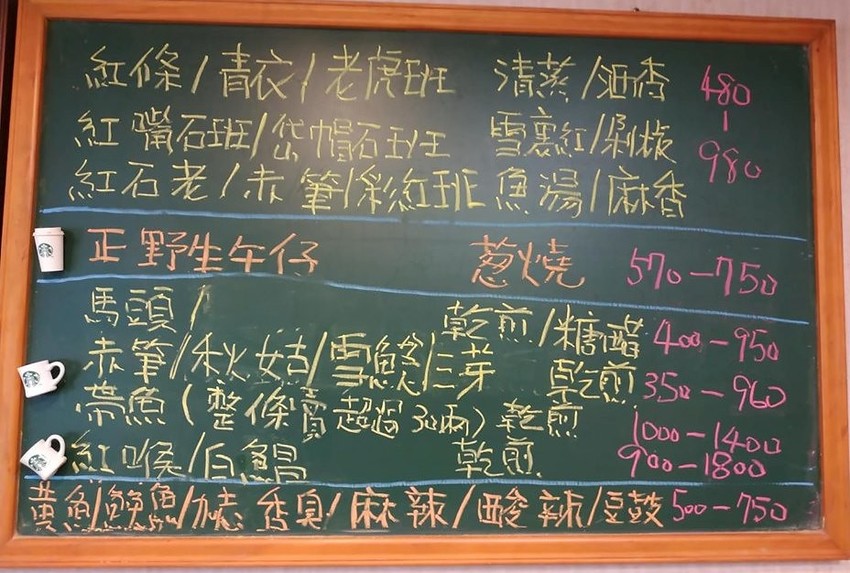 紅條/青衣/老虎班 清蒸/酒香 480
紅嘴石班/玳帽石班 雪裏紅/剁椒 |
紅石老/赤筆/彩紅班 魚湯/麻香 980
正野生午仔 蔥燒 570-750
馬頭/ 乾煎/糖醋 400-950
赤筆/秋姑/雪鯮/三芽 乾煎 350-960
帶魚(整條賣超過30兩) 乾煎 1000-1400
紅喉/白鯧 乾煎 900-1800
黃魚/鮸魚/加志 香臭/麻辣/酸辣/豆鼓 500-750